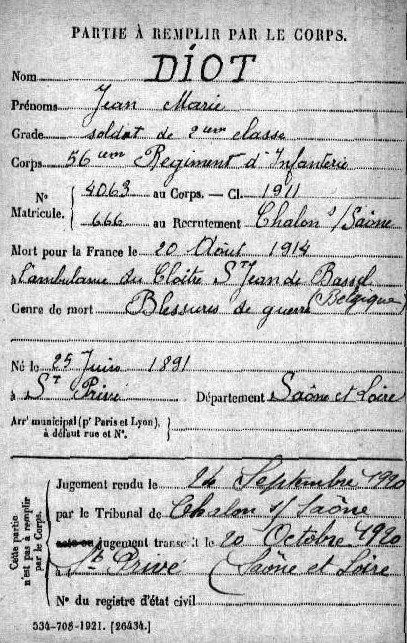 PARTIE À REMPLIR PAR LE CORPS.
Nom DIOT
Prénoms Jean Marie
Grade soldat de 2eme classe
Corps 56eme Régiment d'Infanterie
N° Matricule. { 4063 au Corps. — Cl. 1911
666 au Recrutement Chalon s/Saône
Mort pour la France le 20 Août 1914
à l'ambulance du Cloître St Jean de Bassel
(Belgique)
Genre de mort Blessures de guerre
Né le 25 Juin 1891
à St Privé Département Saône et Loire
Arrt municipal (pr Paris et Lyon), à défaut rue et N°.
Cette partie n'est pas à remplir par le Corps.
Jugement rendu le 24 Septembre 1920
par le Tribunal de Chalon s/Saône
acte ou jugement transcrit le 20 Octobre 1920
St Privé (Saône et Loire
N° du registre d'état civil
534-708-1921. [26434.]